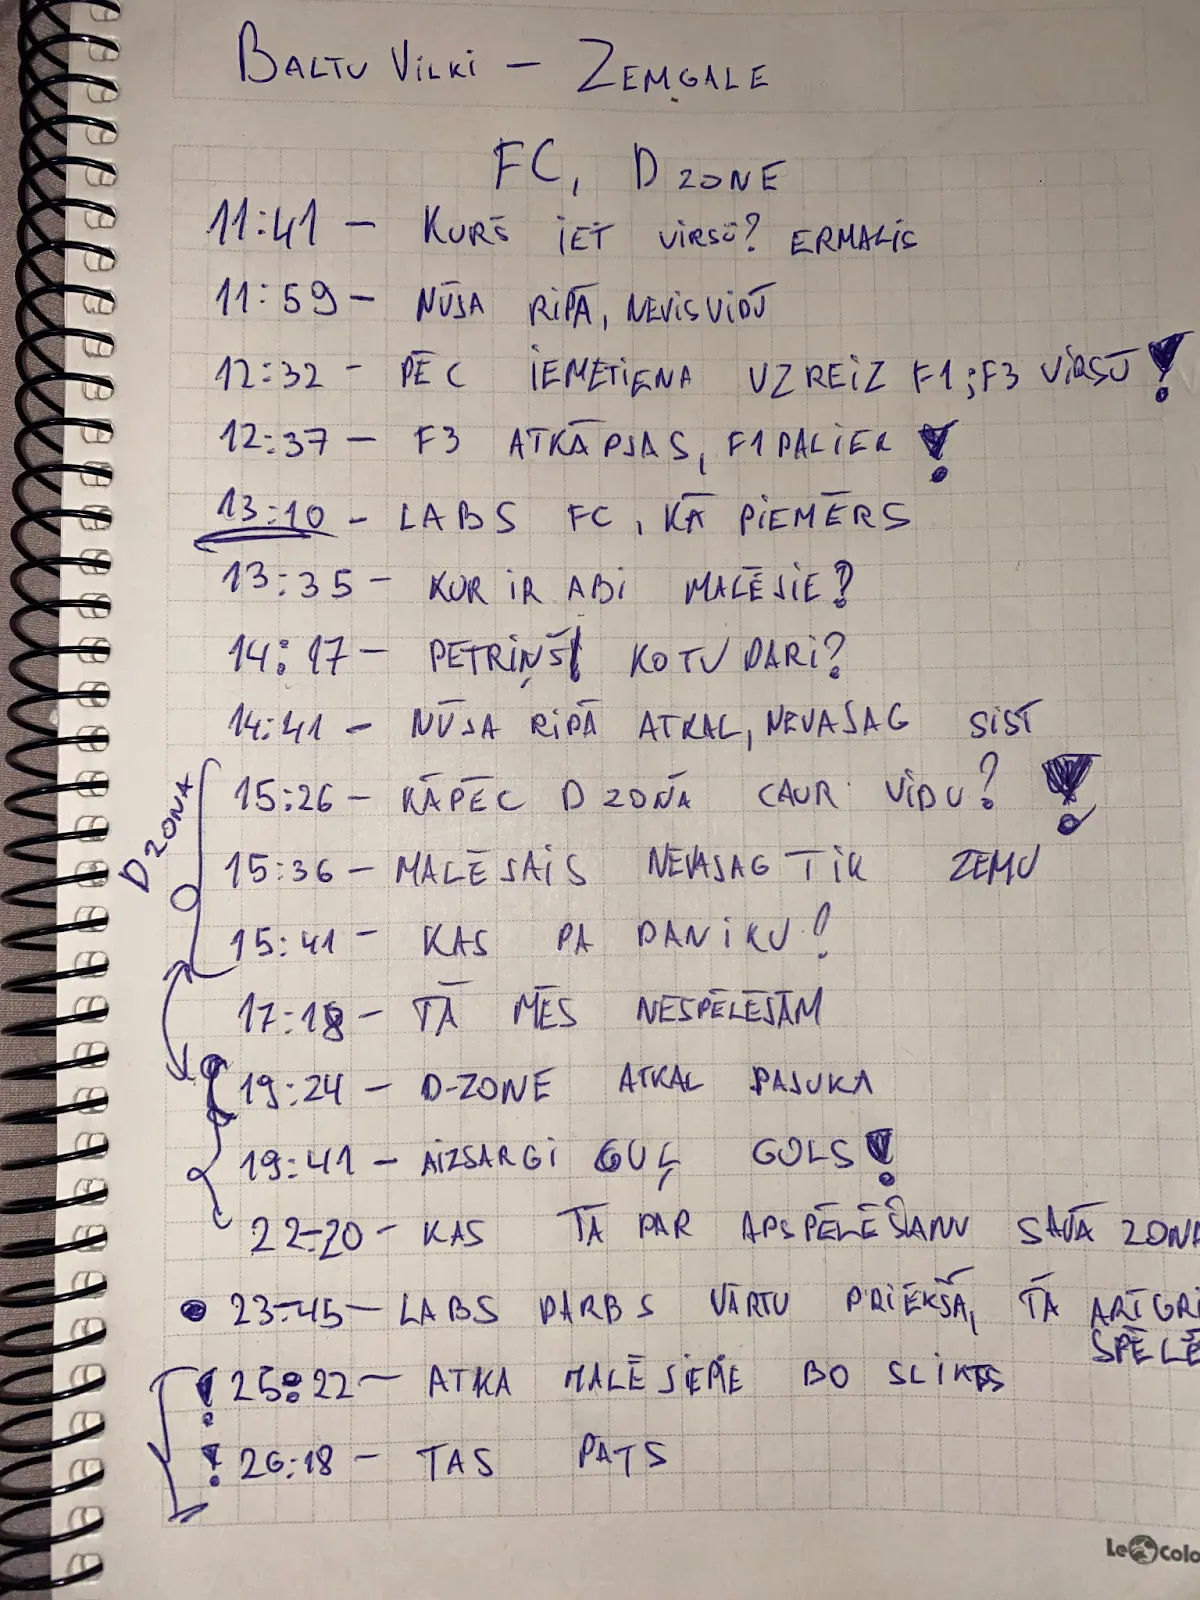 BALTU VILKI – ZEMGALE
FC, D ZONE
11:41 – KURŠ IET VIRSŪ? ERMALIS
11:59 – NŪJA RIPĀ, NEVIS VIDŪ
12:32 – PĒC IEMETIENA UZREIZ F1; F3 VIRSŪ !
12:37 – F3 ATKĀPJAS, F1 PALIEK !
13:10 – LABS FC, KĀ PIEMĒRS
13:35 – KUR IR ABI MALĒJIE?
14:17 – PETRIŅŠ! KO TU DARI?
14:41 – NŪJA RIPĀ ATKAL, NEVAJAG SIST
15:26 – KĀPĒC D ZONĀ CAUR VIDU? !
D ZONA
15:36 – MALĒJAIS NEVAJAG TIK ZEMU
15:41 – KAS PA PANIKU?
17:18 – TĀ MĒS NESPĒLĒJAM
19:24 – D-ZONE ATKAL PAJUKA
19:41 – AIZSARGI GUĻ GOLS !
22-20 – KAS TĀ PAR APSPĒLĒŠANU SAVĀ ZONĀ
23-45 – LABS DARBS VĀRTU PRIEKŠĀ, TĀ ARĪ GRI
SPĒLĒ
! 25:22 – ATKA MALĒJIEM BO SLIKTS
! 26:18 – TAS PATS
Le Colo